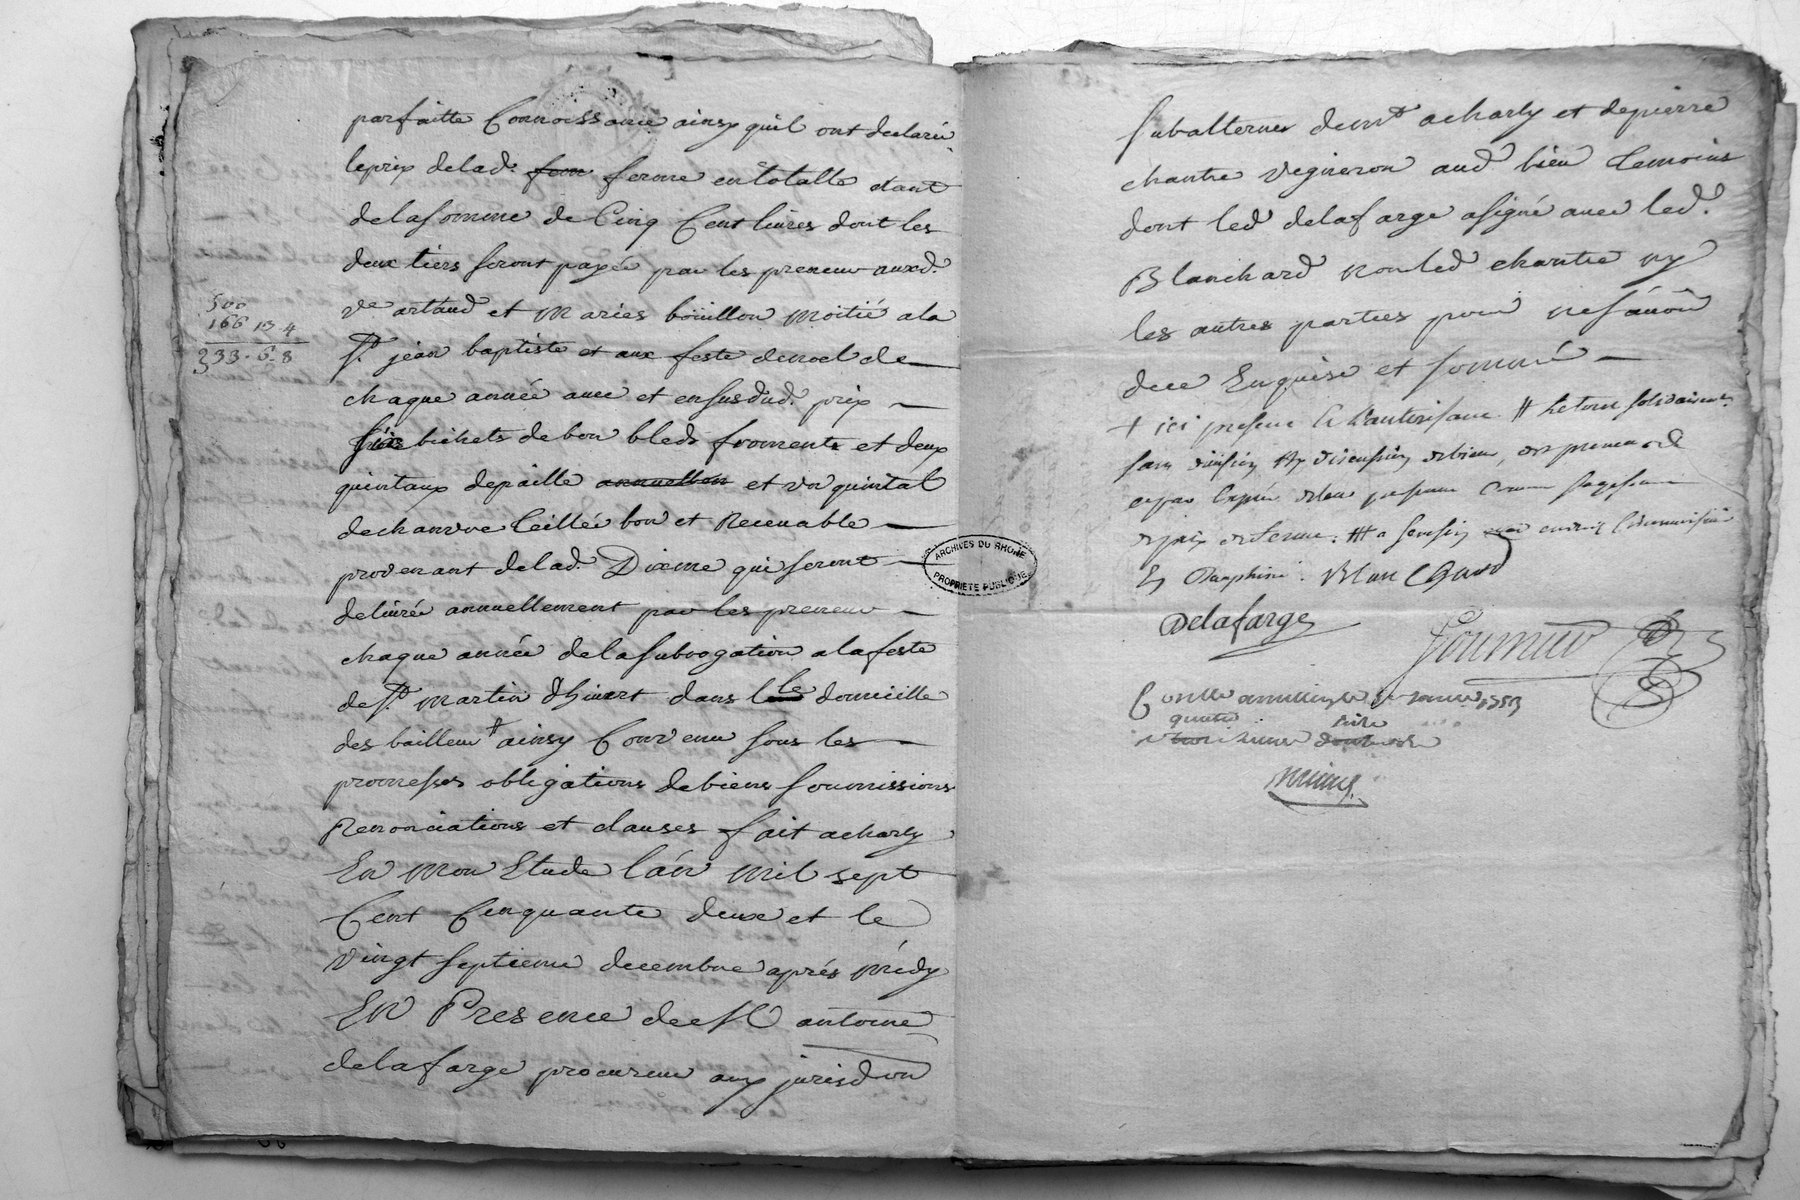 parfaitte Connoissance ainsy quil ont declaré
le prix de lad. fom ferme en totalle etant
de la somme de Cinq Cent livres dont les
deux tiers seront payée par les preneur auxd.
ve artaud et Maries boüillon moitié a la
500
166 13 4
333. 6. 8
St. jean baptiste et aux feste de noel de
chaque année avec et en sus dud. prix
six bichets de bon bleds froment et deux
quintaux de paille annuellem et un quintal
de chanvre teillée bon et Recevable
provenant de lad. Dixme qui seront
delivrée annuellement par les preneur
chaque année de la subrogation a la feste
de St. martin d'hivert dans le domicille
des bailleur # ainsy Convenu sous les
promesses obligations de biens soumissions
Renonciations et clauses fait a charly
En Mon Etude l'an Mil sept
Cent Cinquante deux et le
vingt septieme decembre aprés Midy
En Presence de Sr antoine
delafarge procureur aux jurisdon
subalternes dud a charly et de pierre
chantre vigneron aud lieu temoins
dont led delafarge a signé avec led.
Blanchard non led chantre ny
les autres parties pour ne sçavoir
de ce Enquise et sommé
+ ici presente Et L'autorisant # Le tout solidairement
sans division ny discussion de biens, des preneur
ARCHIVES DU RHÔNE
PROPRIÉTÉ PUBLIQUE
En Dauphiné. Blanchard
Delafarge
Fournier
Conllé
quatre